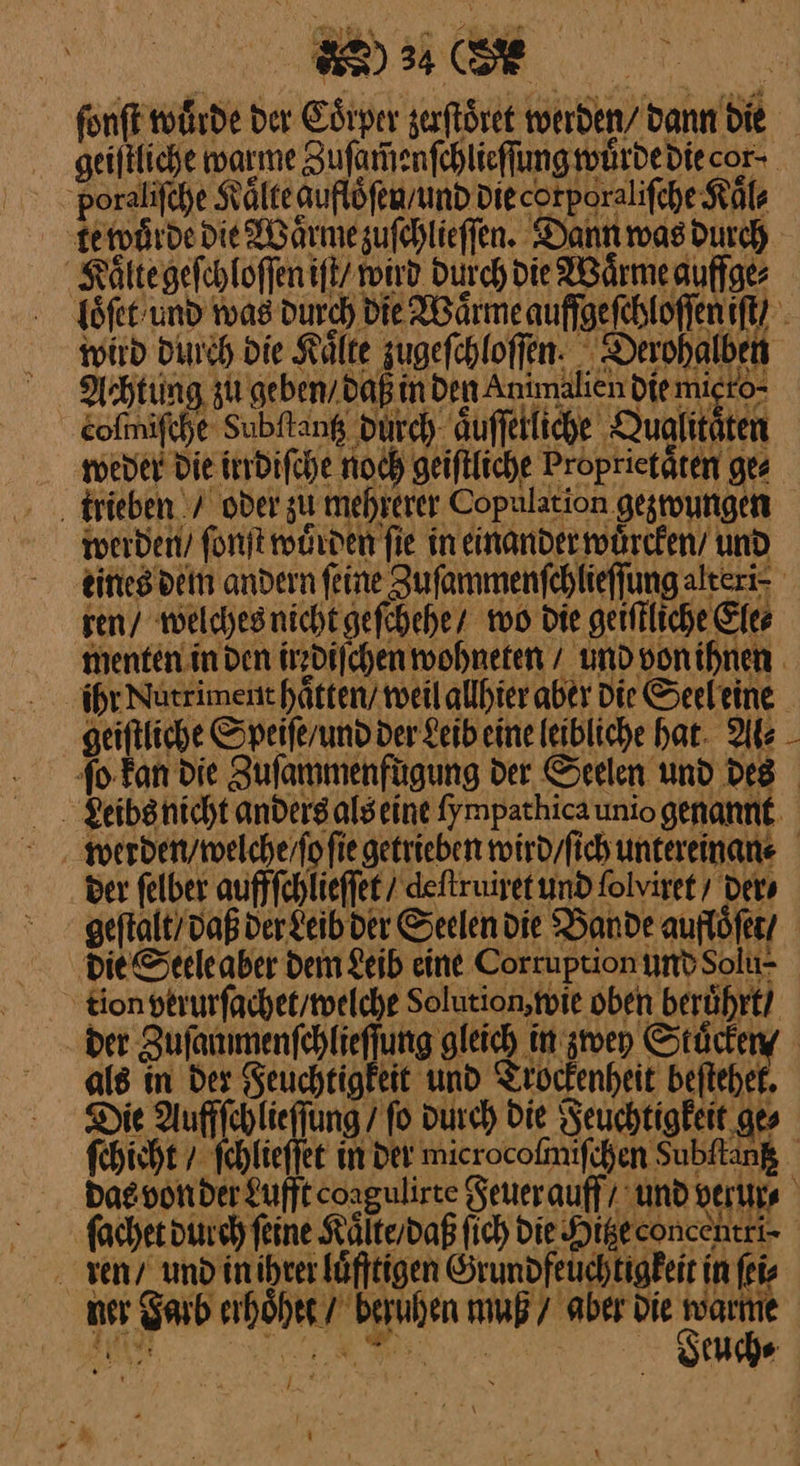 ) 34 (
ſonſt wuͤrde der Coͤrper zerſtoͤret werden/ dann die
geiſtliche warme Zuſam̃enſchlieſſung wuͤrde die cor-
poraliſche Kaͤlte aufloͤſen/und die corporaliſche Kaͤl⸗
te wuͤrde die Waͤrme zuſchlieſſen. Dann was durch
Kaͤlte geſchloſſen iſt/ wird durch die Waͤrme auffge⸗
loͤſet und was durch die Waͤrme auffgeſchloſſen iſt/
wird durch die Kaͤlte zugeſchloſſen. Derohalben
Achtung zu geben/ daß in den Animalien die micro-
coſmiſche Subſtantz durch aͤuſſerliche Qualitaͤten
weder die irrdiſche noch geiſtliche Proprietaͤten ge⸗
trieben / oder zu mehrerer Copulation gezwungen
werden/ ſonſt wuͤrden ſie in einander wuͤrcken/ und
eines dem andern ſeine Zuſammenſchlieſſung alteri-
ren/ welches nicht geſchehe/ wo die geiſtliche Ele⸗
menten in den irꝛdiſchen wohneten / und von ihnen
ihr Nutriment haͤtten/ weil allhier aber die Seel eine
geiſtliche Speiſe/und der Leib eine leibliche hat. Al⸗
ſo kan die Zuſammenfuͤgung der Seelen und des
Leibs nicht anders als eine ſympathica unio genannt
werden/welche/ſo ſie getrieben wird/ſich untereinan⸗
der ſelber auffſchlieſſet / deſtruiret und ſolviret / der⸗
geſtalt/ daß der Leib der Seelen die Bande aufloͤſet/
die Seele aber dem Leib eine Corruption und Solu-
tion verurſachet/welche Solution, wie oben beruͤhrt/
der Zuſammenſchlieſſung gleich in zwey Stuͤcken/
als in der Feuchtigkeit und Trockenheit beſtehet.
Die Auffſchlieſſung / ſo durch die Feuchtigkeit ge⸗
ſchicht / ſchlieſſet in der microcoſmiſchen Subſtantz
das von der Lufft coagulirte Feuer auff / und verur⸗
ſachet durch ſeine Kaͤlte/daß ſich die Hitze concentri-
ren/ und in ihrer luͤfftigen Grundfeuchtigkeit in ſei⸗
ner Farb erhoͤhet / beruhen muß / aber die warme
Feuch⸗